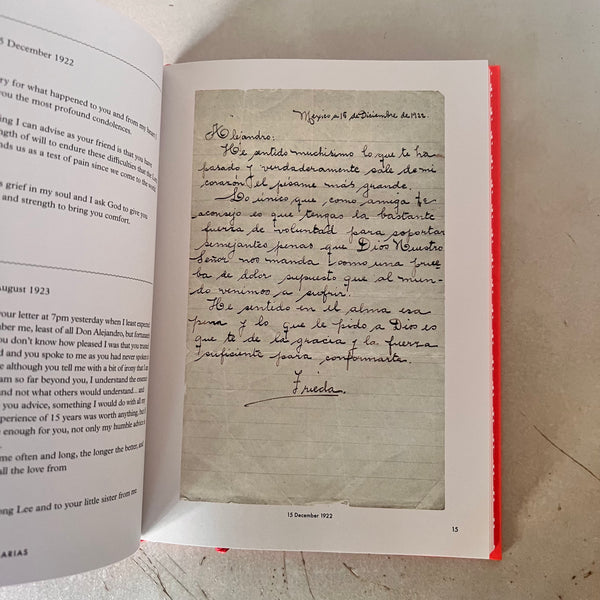 5 December 1922
ry for what happened to you and from my heart I
you the most profound condolences.
ing I can advise as your friend is that you have
ngth of will to endure these difficulties that the Lord
nds us as a test of pain since we come to the world
s grief in my soul and I ask God to give you
and strength to bring you comfort.
August 1923
your letter at 7pm yesterday when I least expected
mber me, least of all Don Alejandro, but fortunately
ou don't know how pleased I was that you trusted
d and you spoke to me as you had never spoken to
e although you tell me with a bit of irony that I am
am so far beyond you, I understand the
and not what others would understand... and
you advice, something I would do with all my
xperience of 15 years was worth anything, but if
enough for you, not only my humble advice is
me often and long, the longer the better, and
all the love from
ong Lee and to your little sister from me
ARIAS
Mexico a 15 de Diciembre de 1922.
Alejandro:
He sentido muchisimo lo que te ha
pasado y verdaderamente sale de mi
corazón el pésame más grande.
Lo único que como amiga te
aconsejo es que tengas la bastante
fuerza de voluntad para soportar
semejantes penas que Dios Nuestro
Señor nos manda como una prue-
ba de dolor supuesto que al mun-
do venimos a sufrir.
He sentido en el alma esa
pena y lo que le pido a Dios es
que te de la gracia y la fuerza
suficiente para conformarte.
Frieda.
15 December 1922
15